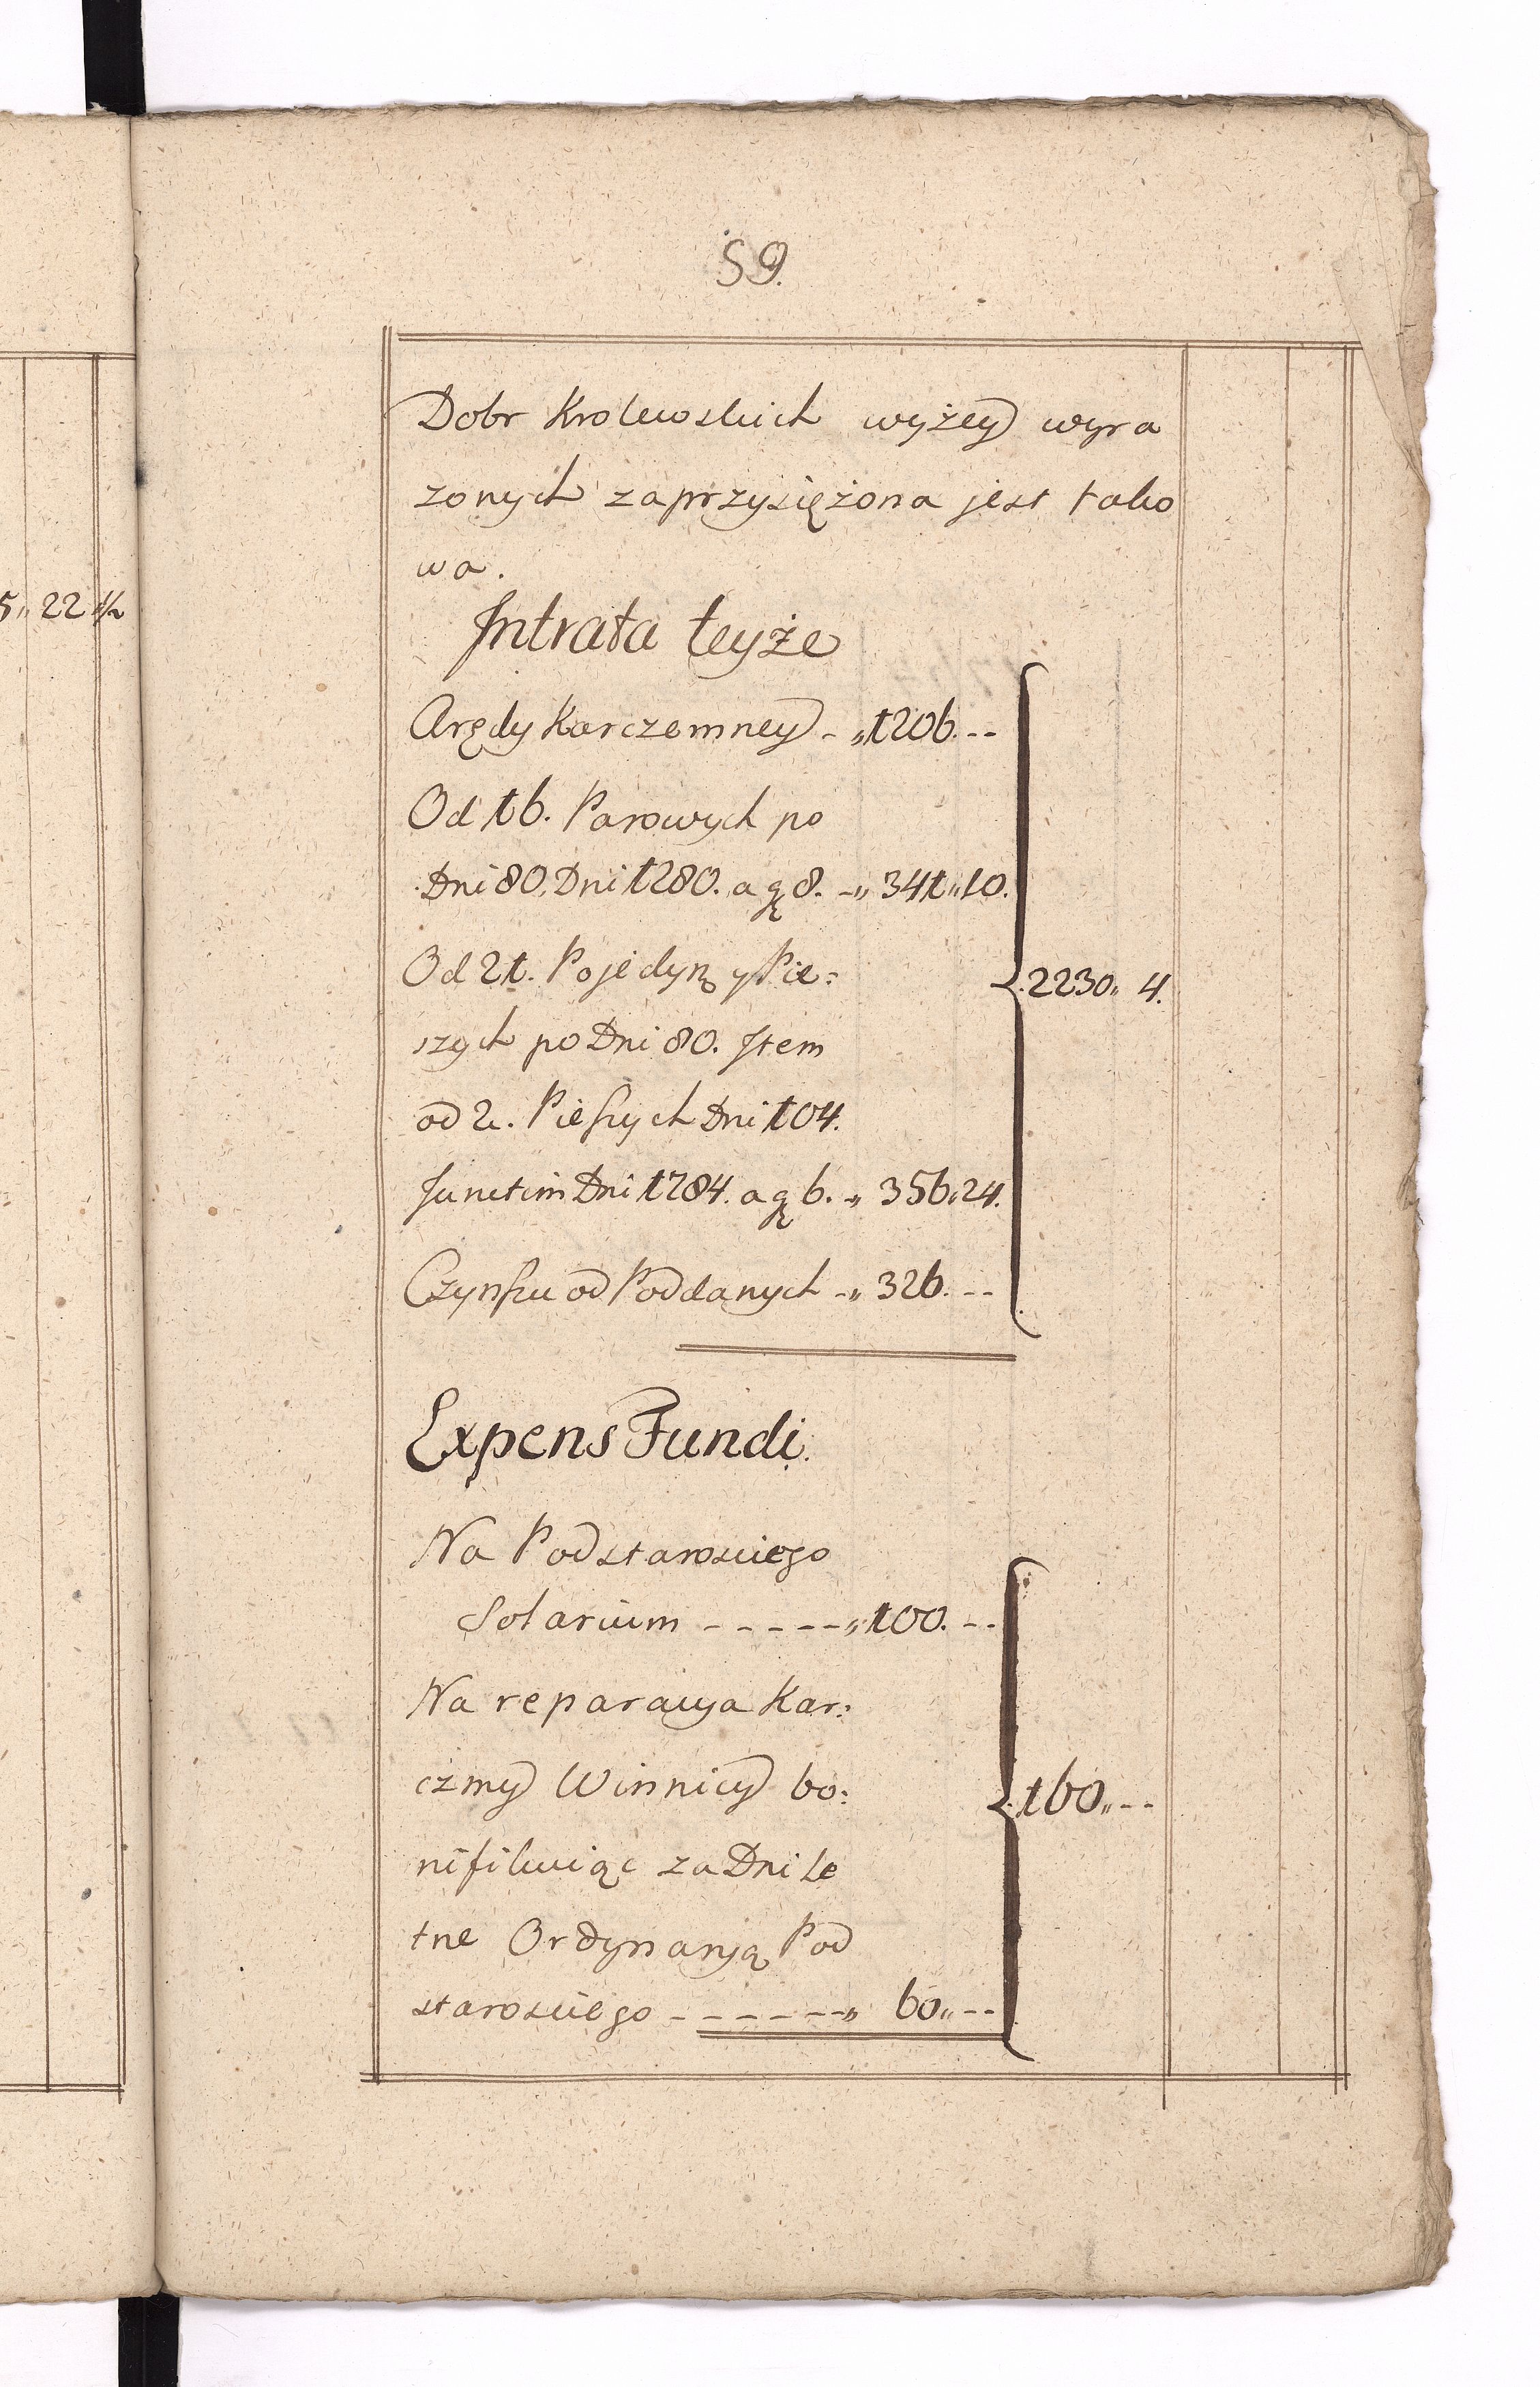 59.
5,, 22 ½
Dobr Krolewskich wyżey wyra
zonych zaprzysiężona jest tako
wa.
Intrata teyże
Arędy Karczemney - ,,1206. --
Od 16. Parowych po
Dni 80. Dni 1280. a gę 8. -,, 341,,10.
Od 21. Pojedyn. y Pie:
szych po Dni 80. Item
od 2. Pieszych Dni 104.
Junctim Dni 1784. a gę 6. -,, 356,,24.
Czynszu od Poddanych -,, 326. --
2230,, 4.
Expens Fundi.
Na Podstarosciego
Solarium - - - - - ,,100. --
Na reparacya Kar:
czmy Winnicy bo:
nifikuiąc za Dni Le
tne Ordynaryą Pod
starosciego - - - - - - ,, 60,, --
160,, --